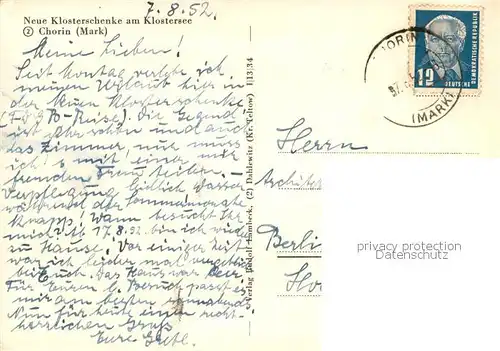 7.8.52.
Neue Klosterschenke am Klostersee
② Chorin (Mark)
Meine Lieben!
Seit Montag verlebe ich
meinen Urlaub hier in
der Neuen Klosterschenke
Die Gegend
ist sehr schön und auch
das Zimmer, nur muss
ich es mit einer mir
fremden Frau teilen.
Verpflegung
während der Sommermonate
knapp! Wann besucht Ihr
mich? Ab 17.8.52. bin ich wieder
zu Hause. Vor einiger Zeit
war ich leider mal
bei Euch. Das Haus war leer.
Für Euren Besuch passt es
mir am besten
Nun für heute einen recht
herzlichen Gruß
Eure
Verlag Rudolf Lambeck, (2) Dahlewitz (Kr. Teltow) I 13/34
CHORIN
(MARK)
12
DEUTSCHE
DEMOKRATISCHE REPUBLIK
Herrn
Berlin
privacy protection
Datenschutz